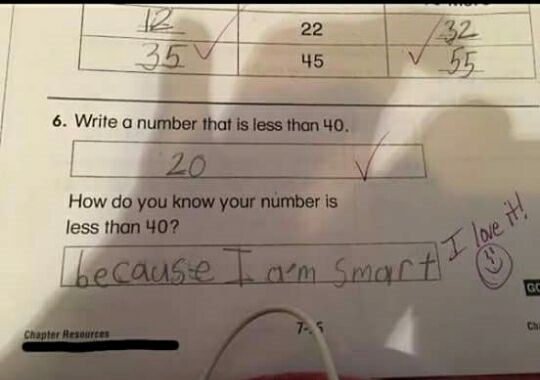 12 22 32
35 45 55
6. Write a number that is less than 40.
20
How do you know your number is
less than 40?
because I am smart
I love it!
Chapter Resources
GO
Ch